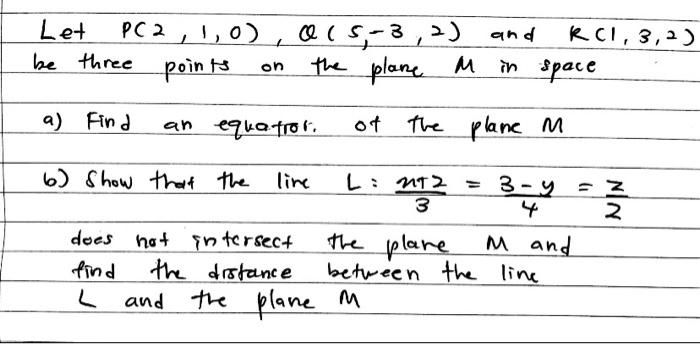 Let P(2, 1, 0), Q(5, -3, 2) and R(1, 3, 2)
be three points on the plane M in space
a) Find an equation of the plane M
b) Show that the line L: x+2/3 = 3-y/4 = z/2
does not intersect the plane M and
find the distance between the line
L and the plane M